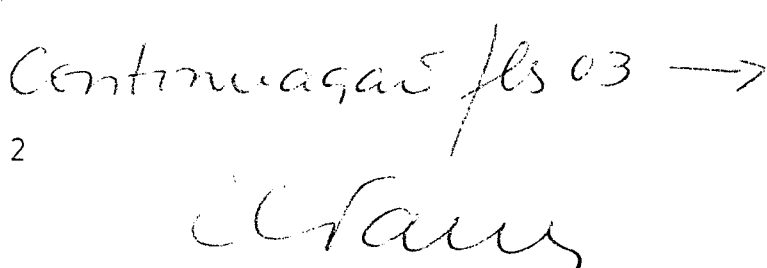 Continuação fls 03 →
2